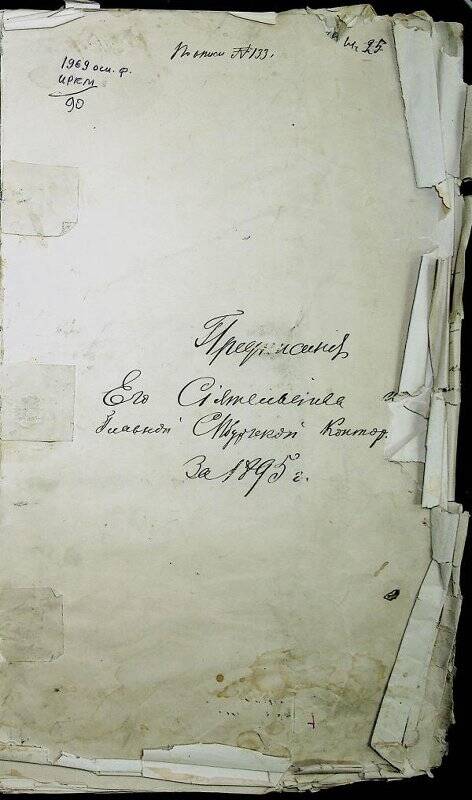 По описи № 133.
25
1969 осн. ф.
ИРКМ
90
Предписанія
Его Сіятельства и
Главной СПбургской Контор.
За 1895 г.